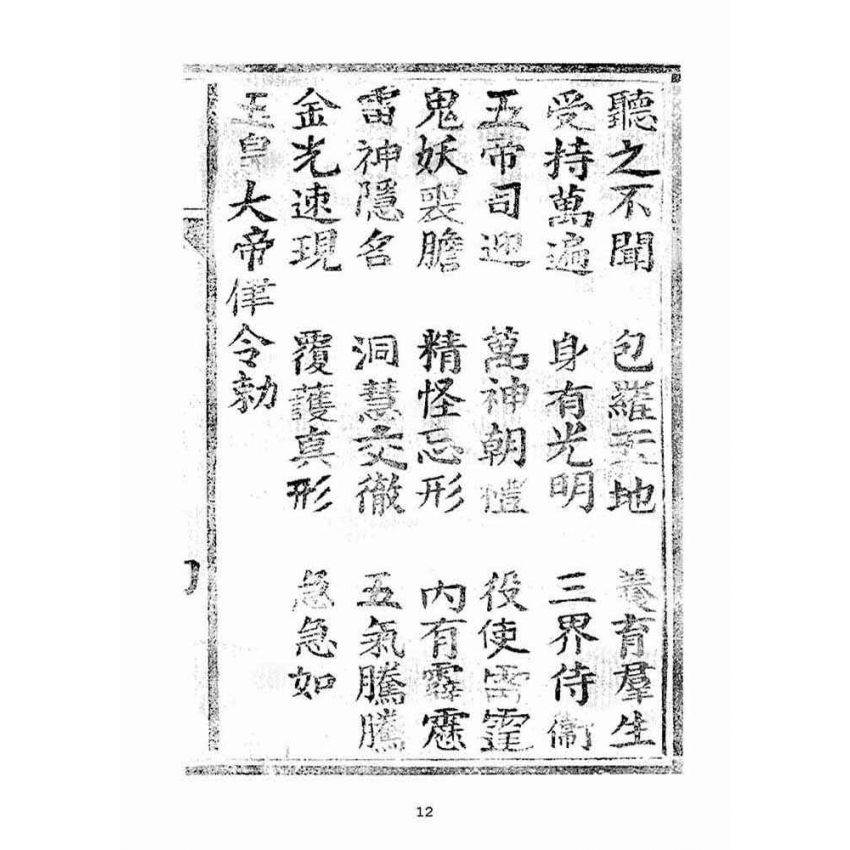 聽之不聞 包羅天地 養育羣生
受持萬遍 身有光明 三界侍衛
五帝司迎 萬神朝禮 役使雷霆
鬼妖喪膽 精怪忘形 內有霹靂
雷神隱名 洞慧交徹 五氣騰騰
金光速現 覆護真形 急急如
玉皇大帝律令勅
12